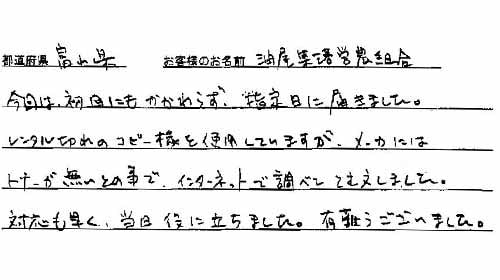 都道府県 富山県 お客様のお名前 油尾集落営農組合
今回は、初回にもかかわらず、指定日に届きました。
レンタル切れのコピー機を使用していますが、メーカには
トナーが無いとの事で、インターネットで調べて注文しました。
対応も早く、当日役に立ちました。有難うございました。